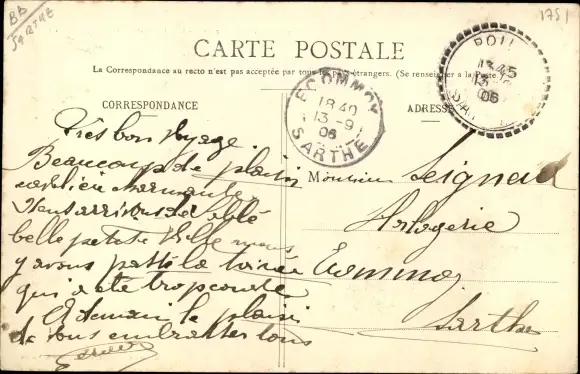 BB
SARTHE
1751
CARTE POSTALE
La Correspondance au recto n'est pas acceptée par tous les pays étrangers. (Se renseigner à la Poste.)
CORRESPONDANCE
ADRESSE
ECOMMOY
18 40
13 - 9
06
SARTHE
13 45
13
06
Très bon voyage
Beaucoup de plaisir
belle petite ville nous
y avons passé la soirée
qui a été trop courte
A demain le plaisir
de vous embrasser tous
Monsieur Seigneur
Horlogerie
Ecommoy
Sarthe